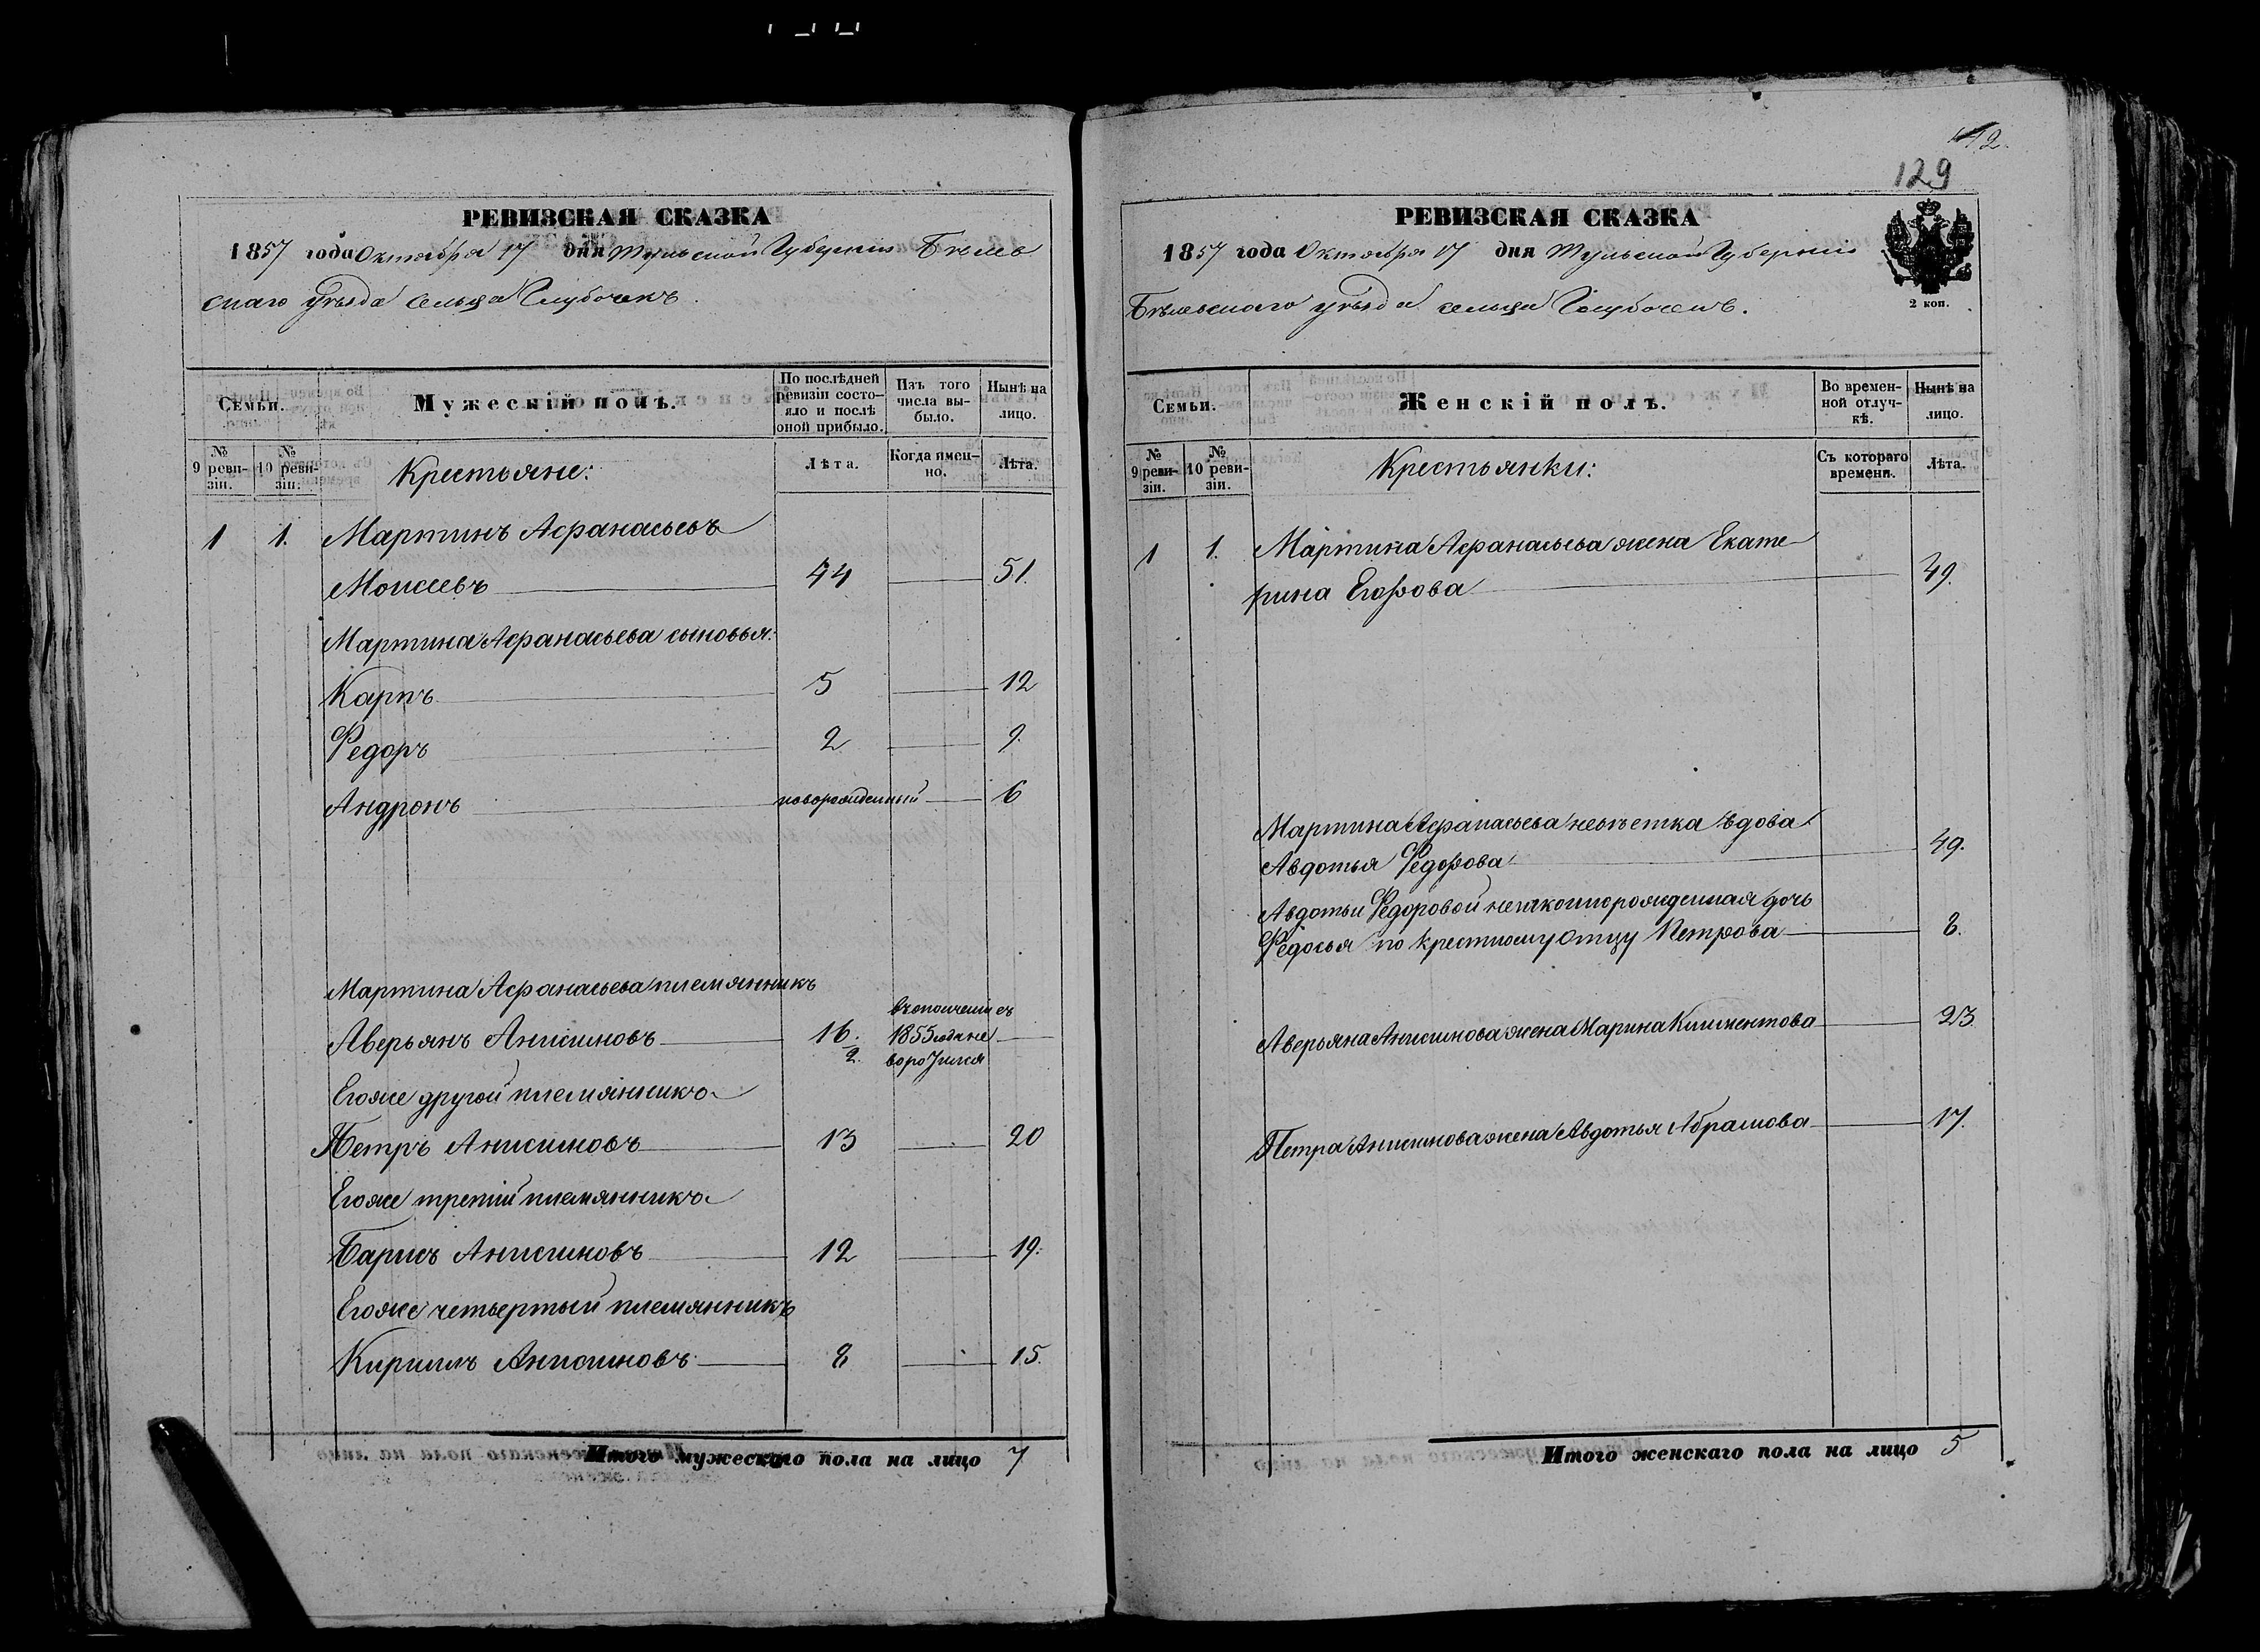 РЕВИЗСКАЯ СКАЗКА
1857 года Октября 17 дня Тульской Губернии Бѣлев
скаго уѣзда сельца Глубокекъ.
Семьи.
Мужескій полъ.
По послѣдней ревизіи состояло и послѣ оной прибыло.
Изъ того числа выбыло.
Нынѣ на лицо.
№ 9 ревизіи.
№ 10 ревизіи.
Крестьяне:
Лѣта.
Когда именно.
Лѣта.
1 1. Мартинъ Афанасьевъ
Моисеевъ 44 51.
Мартина Афанасьева сыновья:
Карпъ 5 12
Федоръ 2 9.
Андронъ новорожденный 6
Мартина Афанасьева племянникъ
Аверьянъ Анисимовъ 16. 2. въ ополченіи съ 1855 года не воротился
Егоже другой племянникъ
Петръ Анисимовъ 13 20
Егоже третій племянникъ
Барисъ Анисимовъ 12 19.
Егоже четвертый племянникъ
Кириллъ Анисимовъ 8 15.
Итого мужескаго пола на лицо 7
12.
129
РЕВИЗСКАЯ СКАЗКА
1857 года Октября 17 дня Тульской Губерніи
Бѣлевскаго уѣзда сельца
2 коп.
Семьи.
Женскій полъ.
Во временной отлучкѣ.
Нынѣ на лицо.
№ 9 ревизіи.
№ 10 ревизіи.
Крестьянки:
Съ котораго времени.
Лѣта.
1 1. Мартина Афанасьева жена Екате
рина Егорова 49.
Мартина Афанасьева невѣстка вдова
Авдотья Федорова 49.
Авдотьи Федоровой незаконнорожденная дочь
Федосья по крестному отцу Петрова 8.
Аверьяна Анисимова жена Марина Климентова 23
Петра Анисимова жена Авдотья Абрамова 17.
Итого женскаго пола на лицо 5